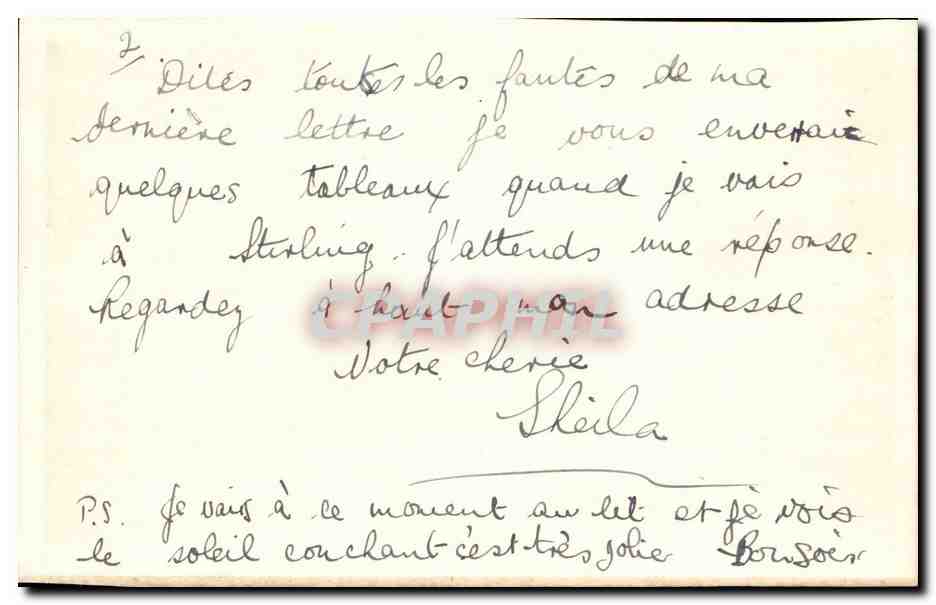 2/
Dites toutes les fautes de ma
dernière lettre je vous enverai
quelques tableaux quand je vais
à Stirling. J'attends une réponse.
Regardez à haut mon adresse
Votre cherie
Sheila
P.S. Je vais à ce moment au lit et je vois
le soleil couchant c'est très jolie Bonsoir
CPAPHIL